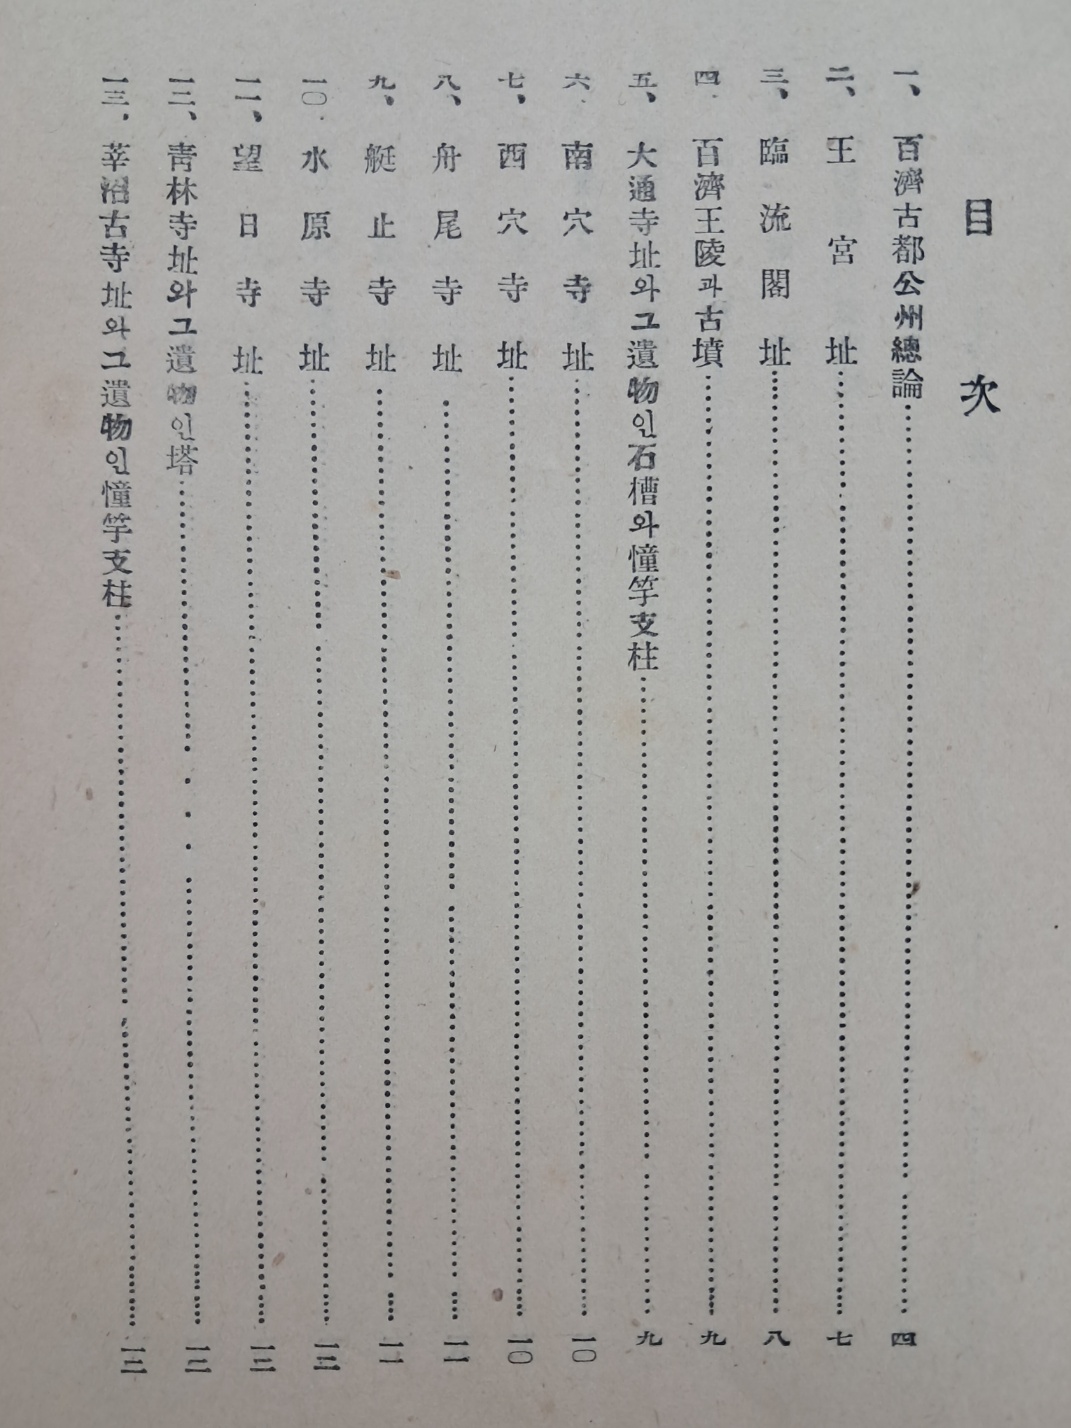 目次
一、百濟古都公州總論……四
二、王宮址……七
三、臨流閣址……八
四、百濟王陵과古墳……九
五、大通寺址와그遺物인石槽와憧竿支柱……九
六、南穴寺址……一〇
七、西穴寺址……一〇
八、舟尾寺址……一一
九、艇止寺址……一一
一〇、水原寺址……一二
一一、望日寺址……一二
一二、靑林寺址와그遺物인塔……一二
一三、莘沼古寺址와그遺物인憧竿支柱……一二